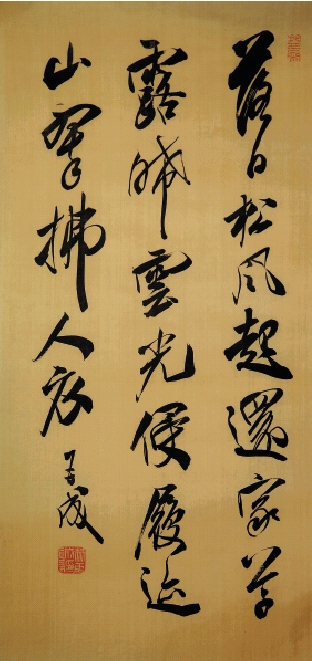 落日松風起還家草
露晞雲光侵履迹
山翠拂人衣